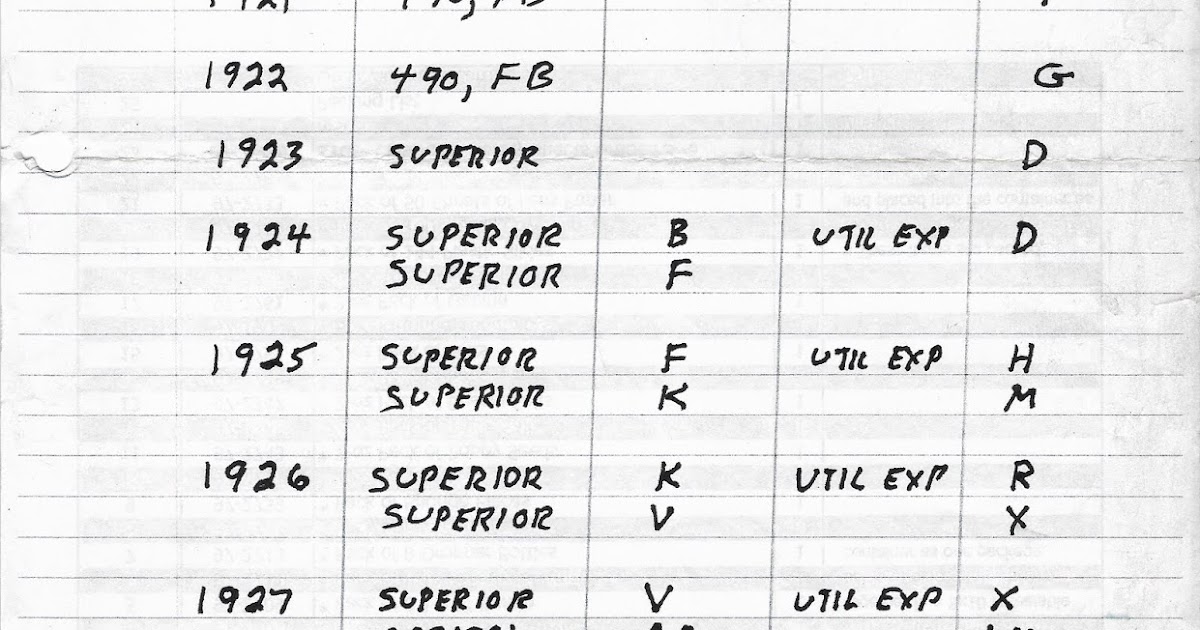 1922 490, FB G
1923 SUPERIOR D
1924 SUPERIOR B UTIL EXP D
SUPERIOR F
1925 SUPERIOR F UTIL EXP H
SUPERIOR K M
1926 SUPERIOR K UTIL EXP R
SUPERIOR V X
1927 SUPERIOR V UTIL EXP X